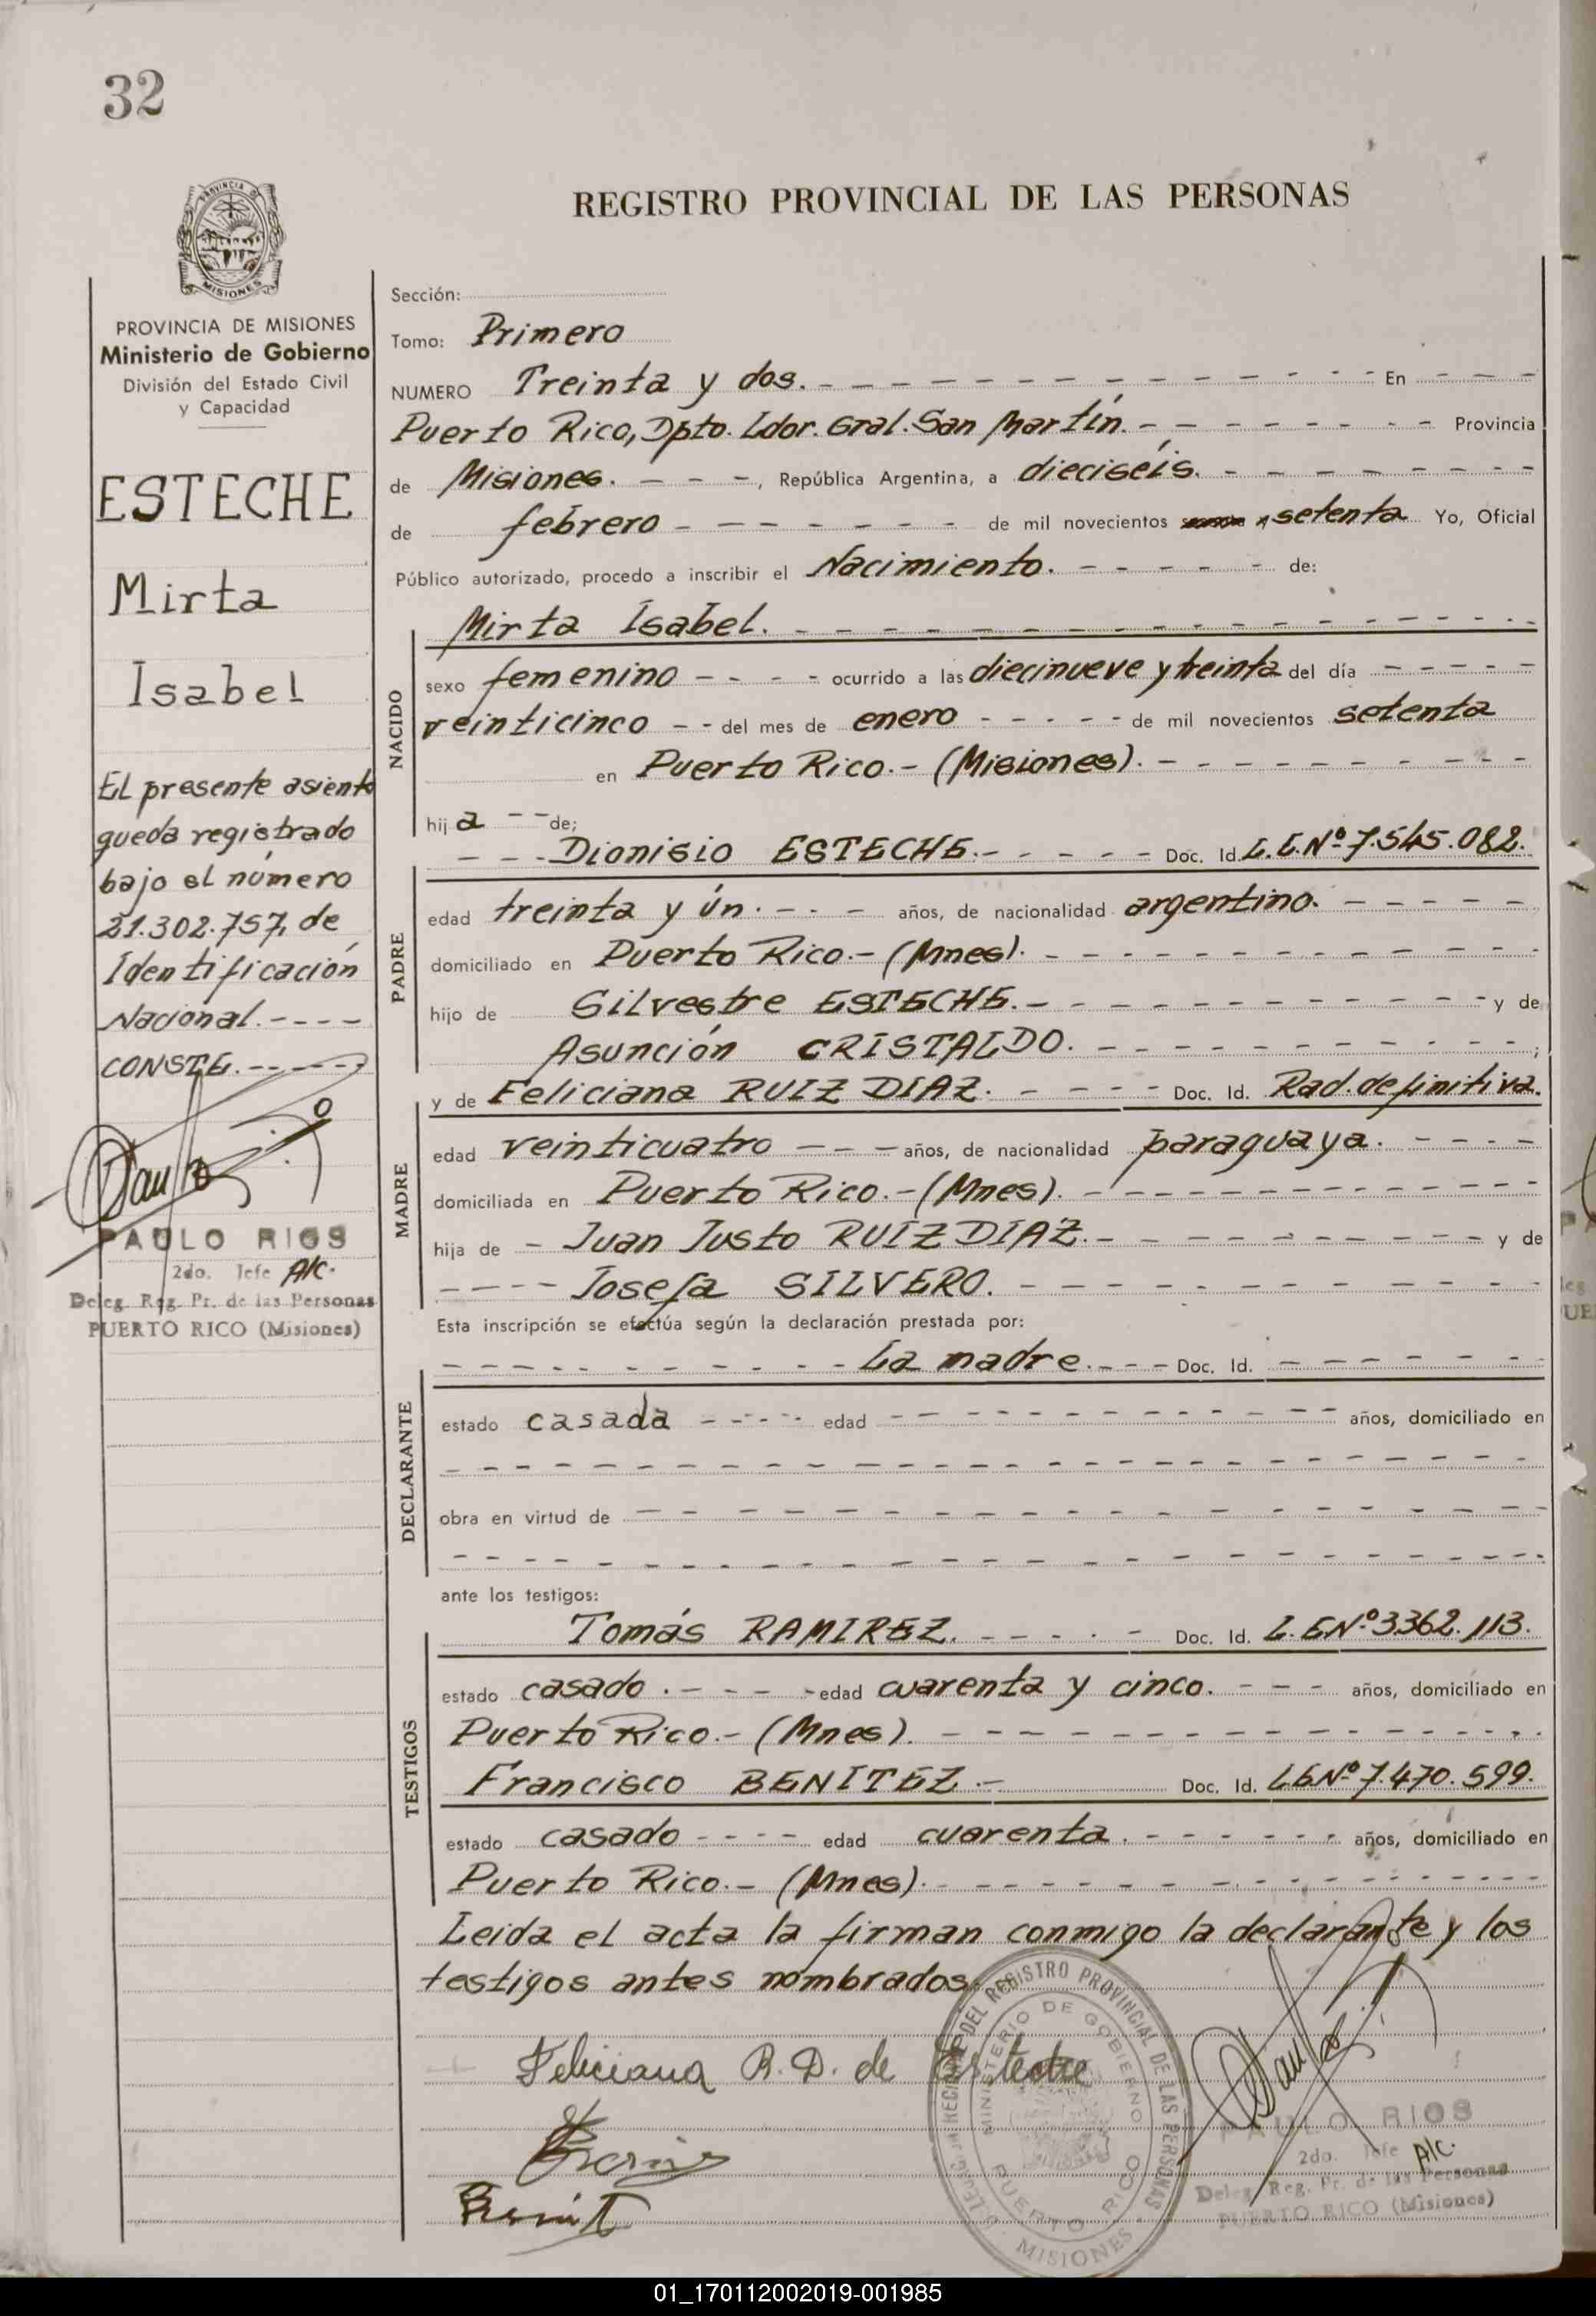 32
REGISTRO PROVINCIAL DE LAS PERSONAS
PROVINCIA DE MISIONES
PROVINCIA DE MISIONES
Ministerio de Gobierno
División del Estado Civil
y Capacidad
ESTECHE
Mirta
Isabel
El presente asiento
queda registrado
bajo el número
21.302.757, de
Identificación
Nacional.----
CONSTE.-----
PAULO RIOS
2do. Jefe A/C.
Deleg. Reg. Pr. de las Personas
PUERTO RICO (Misiones)
Sección:
Tomo: Primero
NUMERO Treinta y dos. - - - - En - - -
Puerto Rico, Dpto. Ldor. Gral. San Martín. - - - - Provincia
de Misiones. - - -, República Argentina, a dieciséis. - - - -
de febrero - - - - de mil novecientos setenta Yo, Oficial
Público autorizado, procedo a inscribir el Nacimiento. - - - - de:
Mirta Isabel. - - - -
NACIDO
sexo femenino - - - - ocurrido a las diecinueve y treinta del día - - - -
veinticinco - - del mes de enero - - - - de mil novecientos setenta
en Puerto Rico.- (Misiones). - - - -
hij a - - de;
- - - Dionisio ESTECHE.- - - - Doc. Id. L.E.Nº 7.545.082.
PADRE
edad treinta y ún. - - - años, de nacionalidad argentino. - - - -
domiciliado en Puerto Rico.- (Mnes). - - - -
hijo de Silvestre ESTECHE.- - - - - y de
Asunción CRISTALDO. - - - - ;
y de Feliciana RUIZ DIAZ. - - - - Doc. Id. Rad. definitiva.
MADRE
edad veinticuatro - - - años, de nacionalidad paraguaya. - - - -
domiciliada en Puerto Rico.- (Mnes). - - - -
hija de - Juan Justo RUIZ DIAZ.- - - - - y de
- - - - Josefa SILVERO. - - - -
Esta inscripción se efectúa según la declaración prestada por:
- - - - La madre.- - - Doc. Id. - - - -
DECLARANTE
estado casada - - - - edad - - - - años, domiciliado en
- - - -
obra en virtud de - - - -
- - - -
ante los testigos:
Tomás RAMIREZ. - - - - Doc. Id. L.E.Nº 3362.113.
TESTIGOS
estado casado. - - - - edad cuarenta y cinco. - - - años, domiciliado en
Puerto Rico.- (Mnes). - - - -
Francisco BENITEZ.- Doc. Id. L.E.Nº 7.470.599.
estado casado - - - - edad cuarenta. - - - - años, domiciliado en
Puerto Rico.- (Mnes). - - - -
Leida el acta la firman conmigo la declarante y los
testigos antes nombrados.
Feliciana R. D. de Esteche
DEL REGISTRO PROVINCIAL DE LAS PERSONAS
MINISTERIO DE GOBIERNO
PUERTO RICO
MISIONES
PAULO RIOS
2do. Jefe A/C.
Deleg. Reg. Pr. de las Personas
PUERTO RICO (Misiones)
01_170112002019-001985